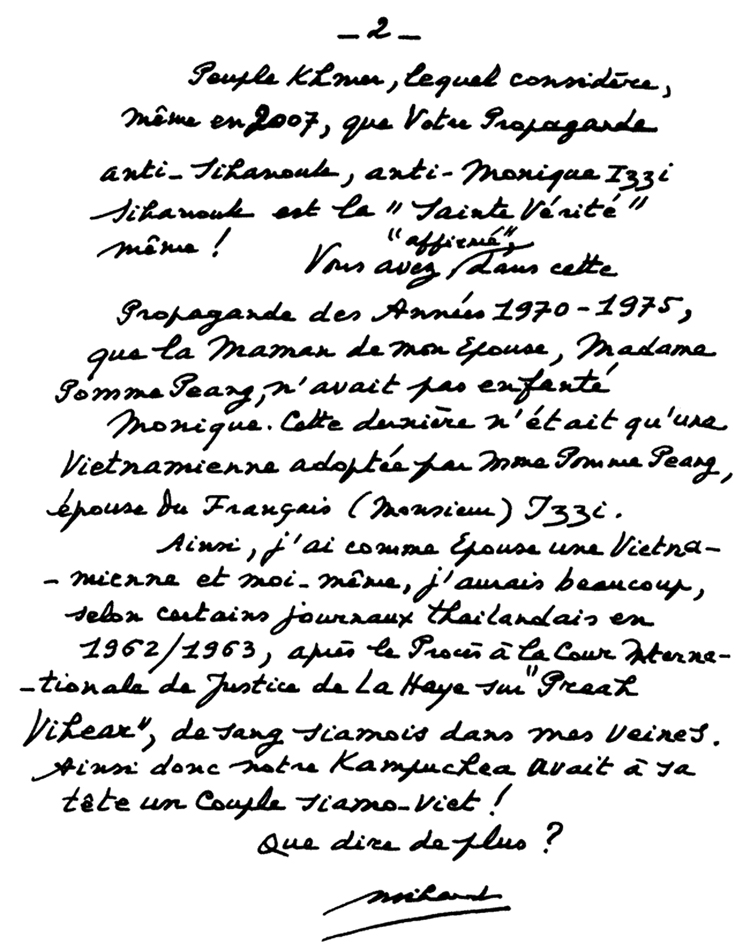 _ 2 _
Peuple Khmer, lequel considère,
même en 2007, que Votre Propagande
anti-Sihanouk, anti-Monique Izzi
Sihanouk est la "Sainte Vérité"
même !
"affirmé",
Vous avez, dans cette
Propagande des Années 1970-1975,
que la Maman de mon Epouse, Madame
Pomme Peang, n'avait pas enfanté
Monique. Cette dernière n'était qu'une
Vietnamienne adoptée par Mme Pomme Peang,
épouse du Français (Monsieur) Izzi.
Ainsi, j'ai comme Epouse une Vietna-
-mienne et moi-même, j'aurais beaucoup,
selon certains journaux thaïlandais en
1962/1963, après le Procès à la Cour Interna-
-tionale de Justice de La Haye sur "Preah
Vihear", de sang siamois dans mes veines.
Ainsi donc notre Kampuchea avait à sa
tête un Couple siamo-viet !
Que dire de plus ?